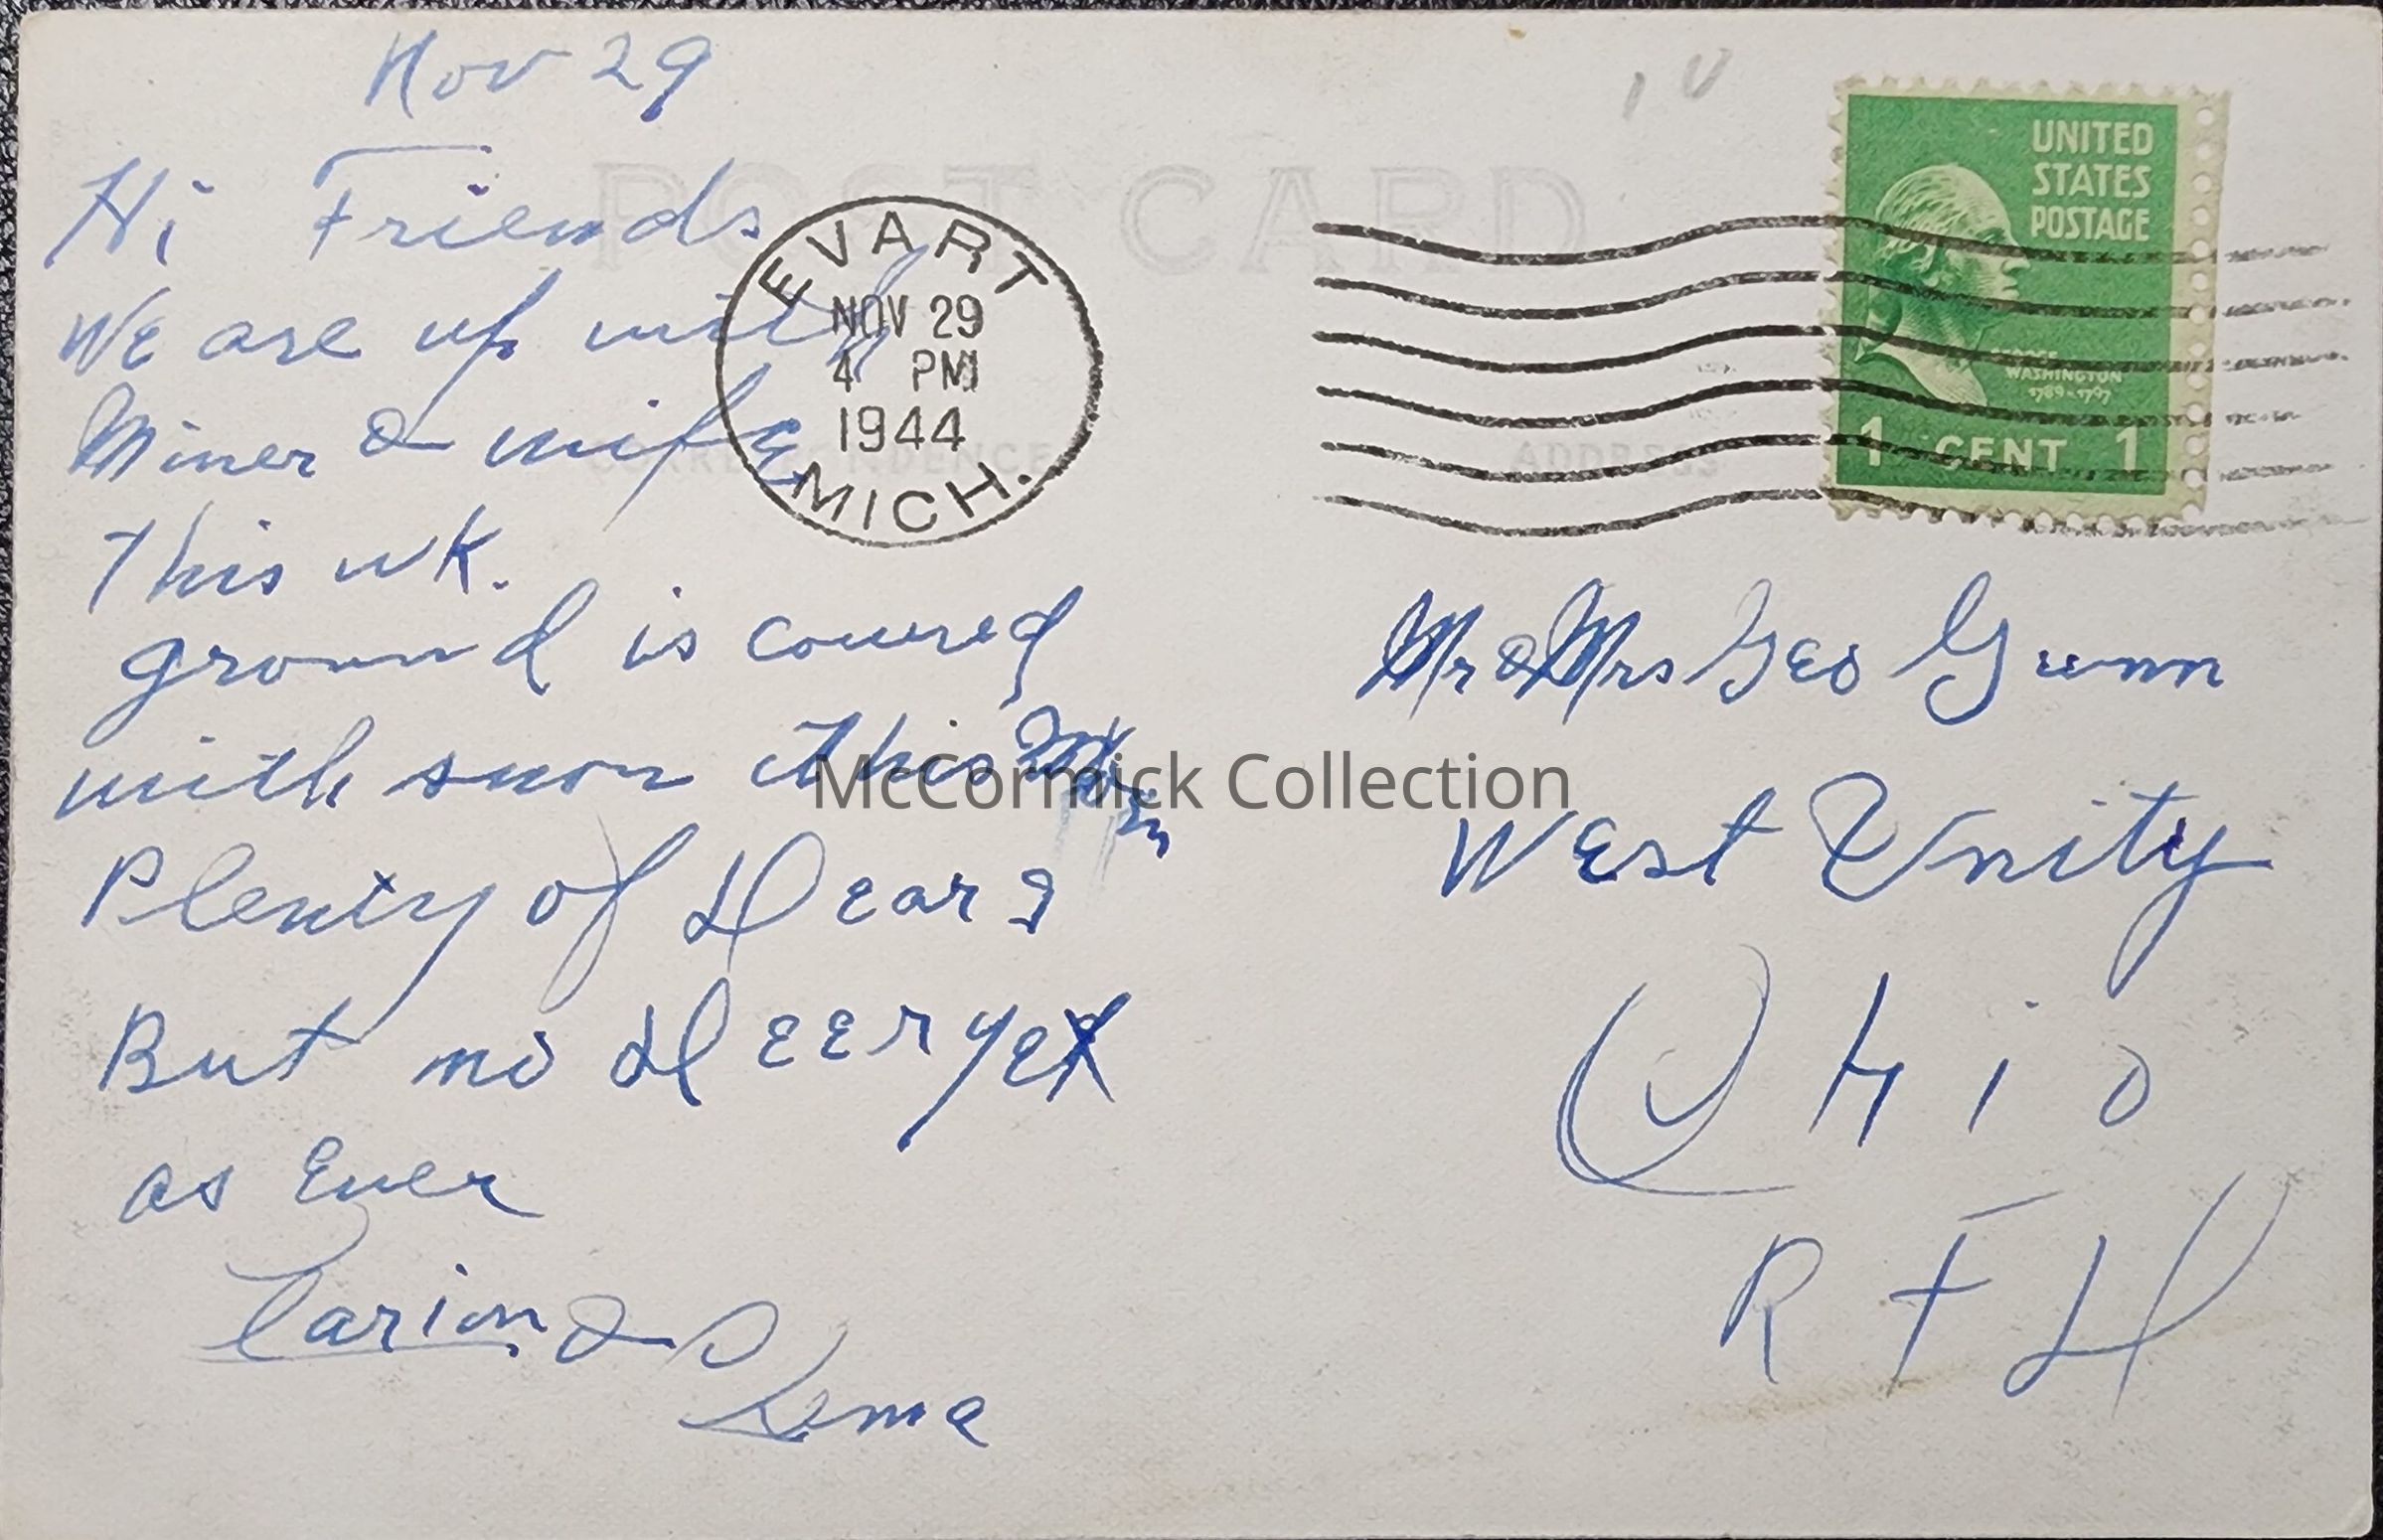 Nov 29
Hi Friends
We are up with
Miner & wife
This wk.
ground is covered
with snow this
Plenty of Dears
But no Deer yet
as Ever
& 
POST CARD
CORRESPONDENCE
ADDRESS
EVART
NOV 29
4 PM
1944
MICH.
UNITED
STATES
POSTAGE
GEORGE
WASHINGTON
1789-1797
1 CENT 1
Mr & Mrs Geo Gunn
West Unity
Ohio
R F D
McCormick Collection